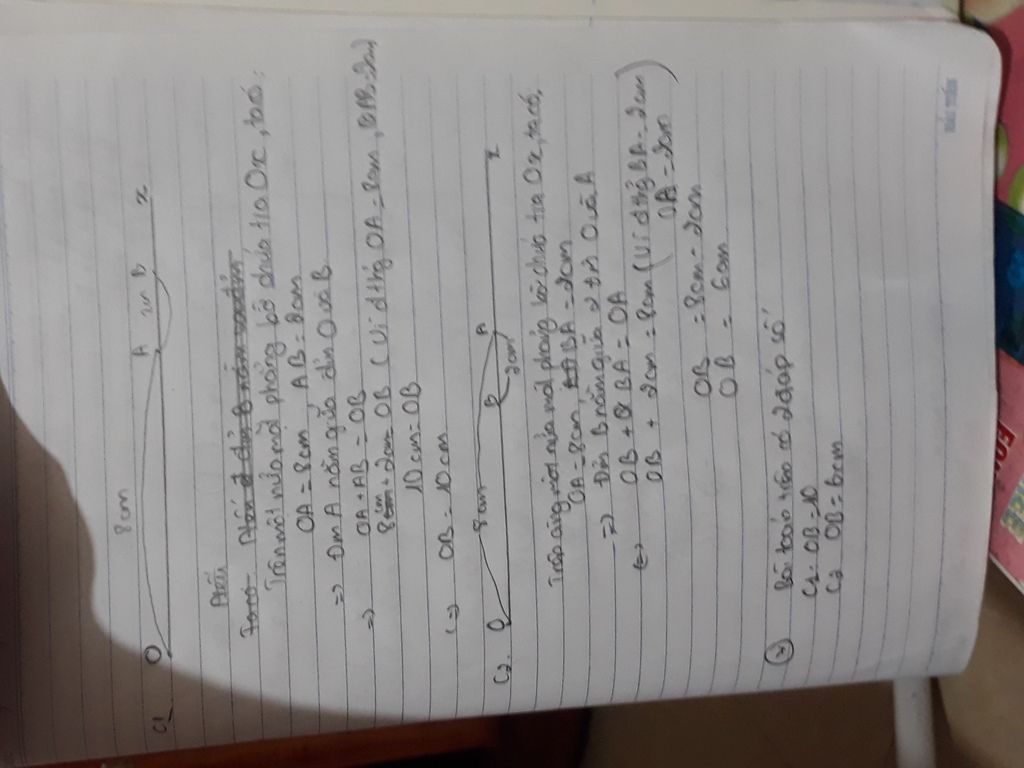 C1
8cm
O A 2cm B x
Trên một nửa mặt phẳng bờ chứa tia Ox, ta có:
OA = 8cm, AB = 2cm
=> Đm A nằm giữa đm O và B
=> OA + AB = OB
8cm + 2cm = OB (Vì đthg OA = 8cm, AB = 2cm)
10cm = OB
(=) OB = 10cm
C2.
8cm
O B A x
2cm
Trên cùng một nửa mặt phẳng bờ chứa tia Ox, ta có,
OA = 8cm BA = 2cm
=> Đm B nằm giữa O và A
OB + BA = OA
(=) OB + 2cm = 8cm (Vì đthg BA = 2cm
OA = 8cm)
OB = 8cm - 2cm
OB = 6cm
Bài toán trên có 2 đáp số
C1: OB = 10
C2 OB = 6cm